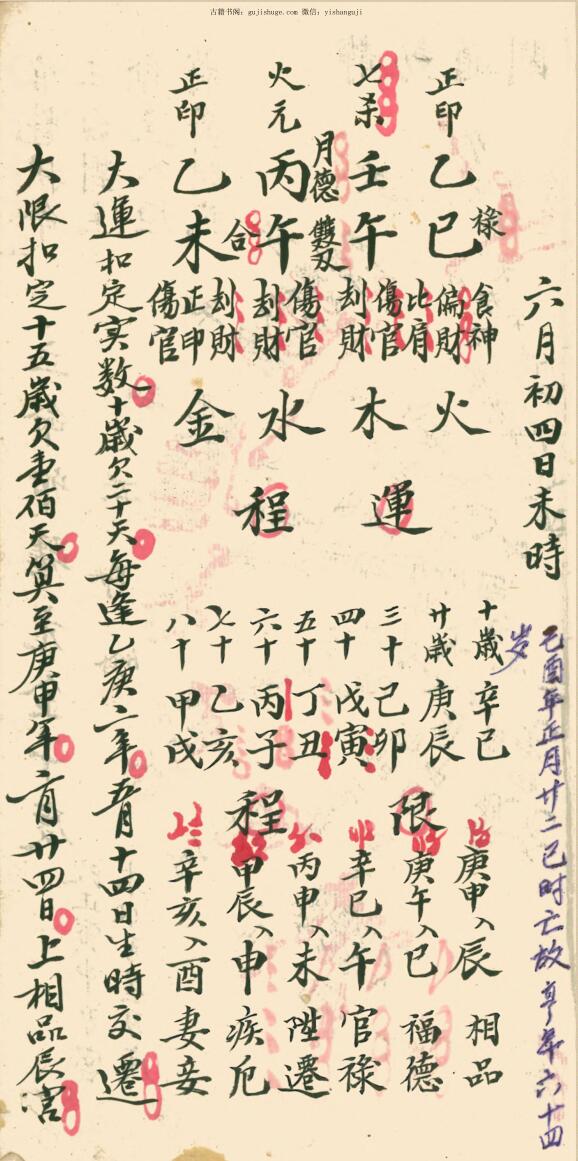 古籍书阁：gujishuge.com 微信：yishanguji
六月初四日未時
己酉年正月廿二巳时亡故 享年六十四
岁
正印 七杀 火元 正印
乙 壬 丙 乙
月德
巳 午 午 未
祿 雙刃 合
食神 偏財 比肩
傷官 刦財
傷官 刦財
刦財 正印 傷官
火 木 水 金
運程
十歲 辛巳
廿歲 庚辰
三十 己卯
四十 戊寅
五十 丁丑
六十 丙子
七十 乙亥
八十 甲戌
限程
庚甲入辰 相品
庚午入巳 福德
辛巳入午 官祿
丙申入未 陞遷
甲辰入申 疾厄
辛亥入酉 妻妾
大運扣定实数十歲欠二十天每逢乙庚二年五月十四日生時交遷
大限扣定十五歲欠壹佰天算至庚甲年二月廿四日上相品辰宫